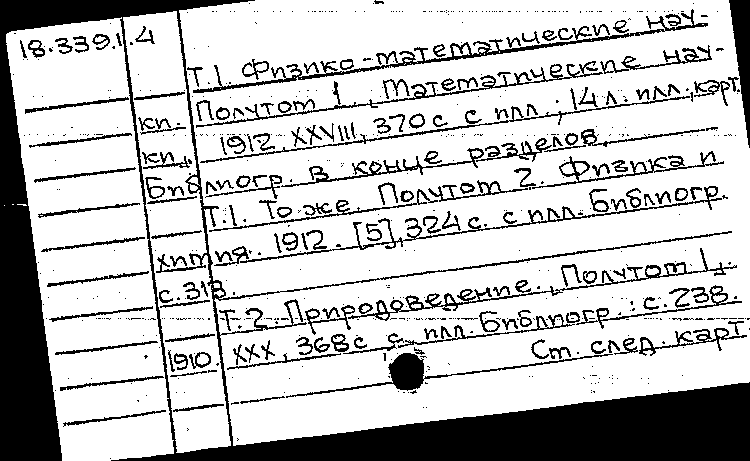 18.339.1.4
Т.1. Физико-математические нау-
кп. Полутом 1., Математические нау-
кп. 1912. XXVIII, 370 с с илл.; 14 л. илл., карт.
Библиогр. в конце разделов.
Т.1. То же. Полутом 2. Физика и
химия. 1912. [5], 324 с. с илл. Библиогр.
с. 313.
Т. 2. Природоведение., Полутом 1.,
1910. XXX, 368 с с илл. Библиогр.: с. 238.
См. след. карт.